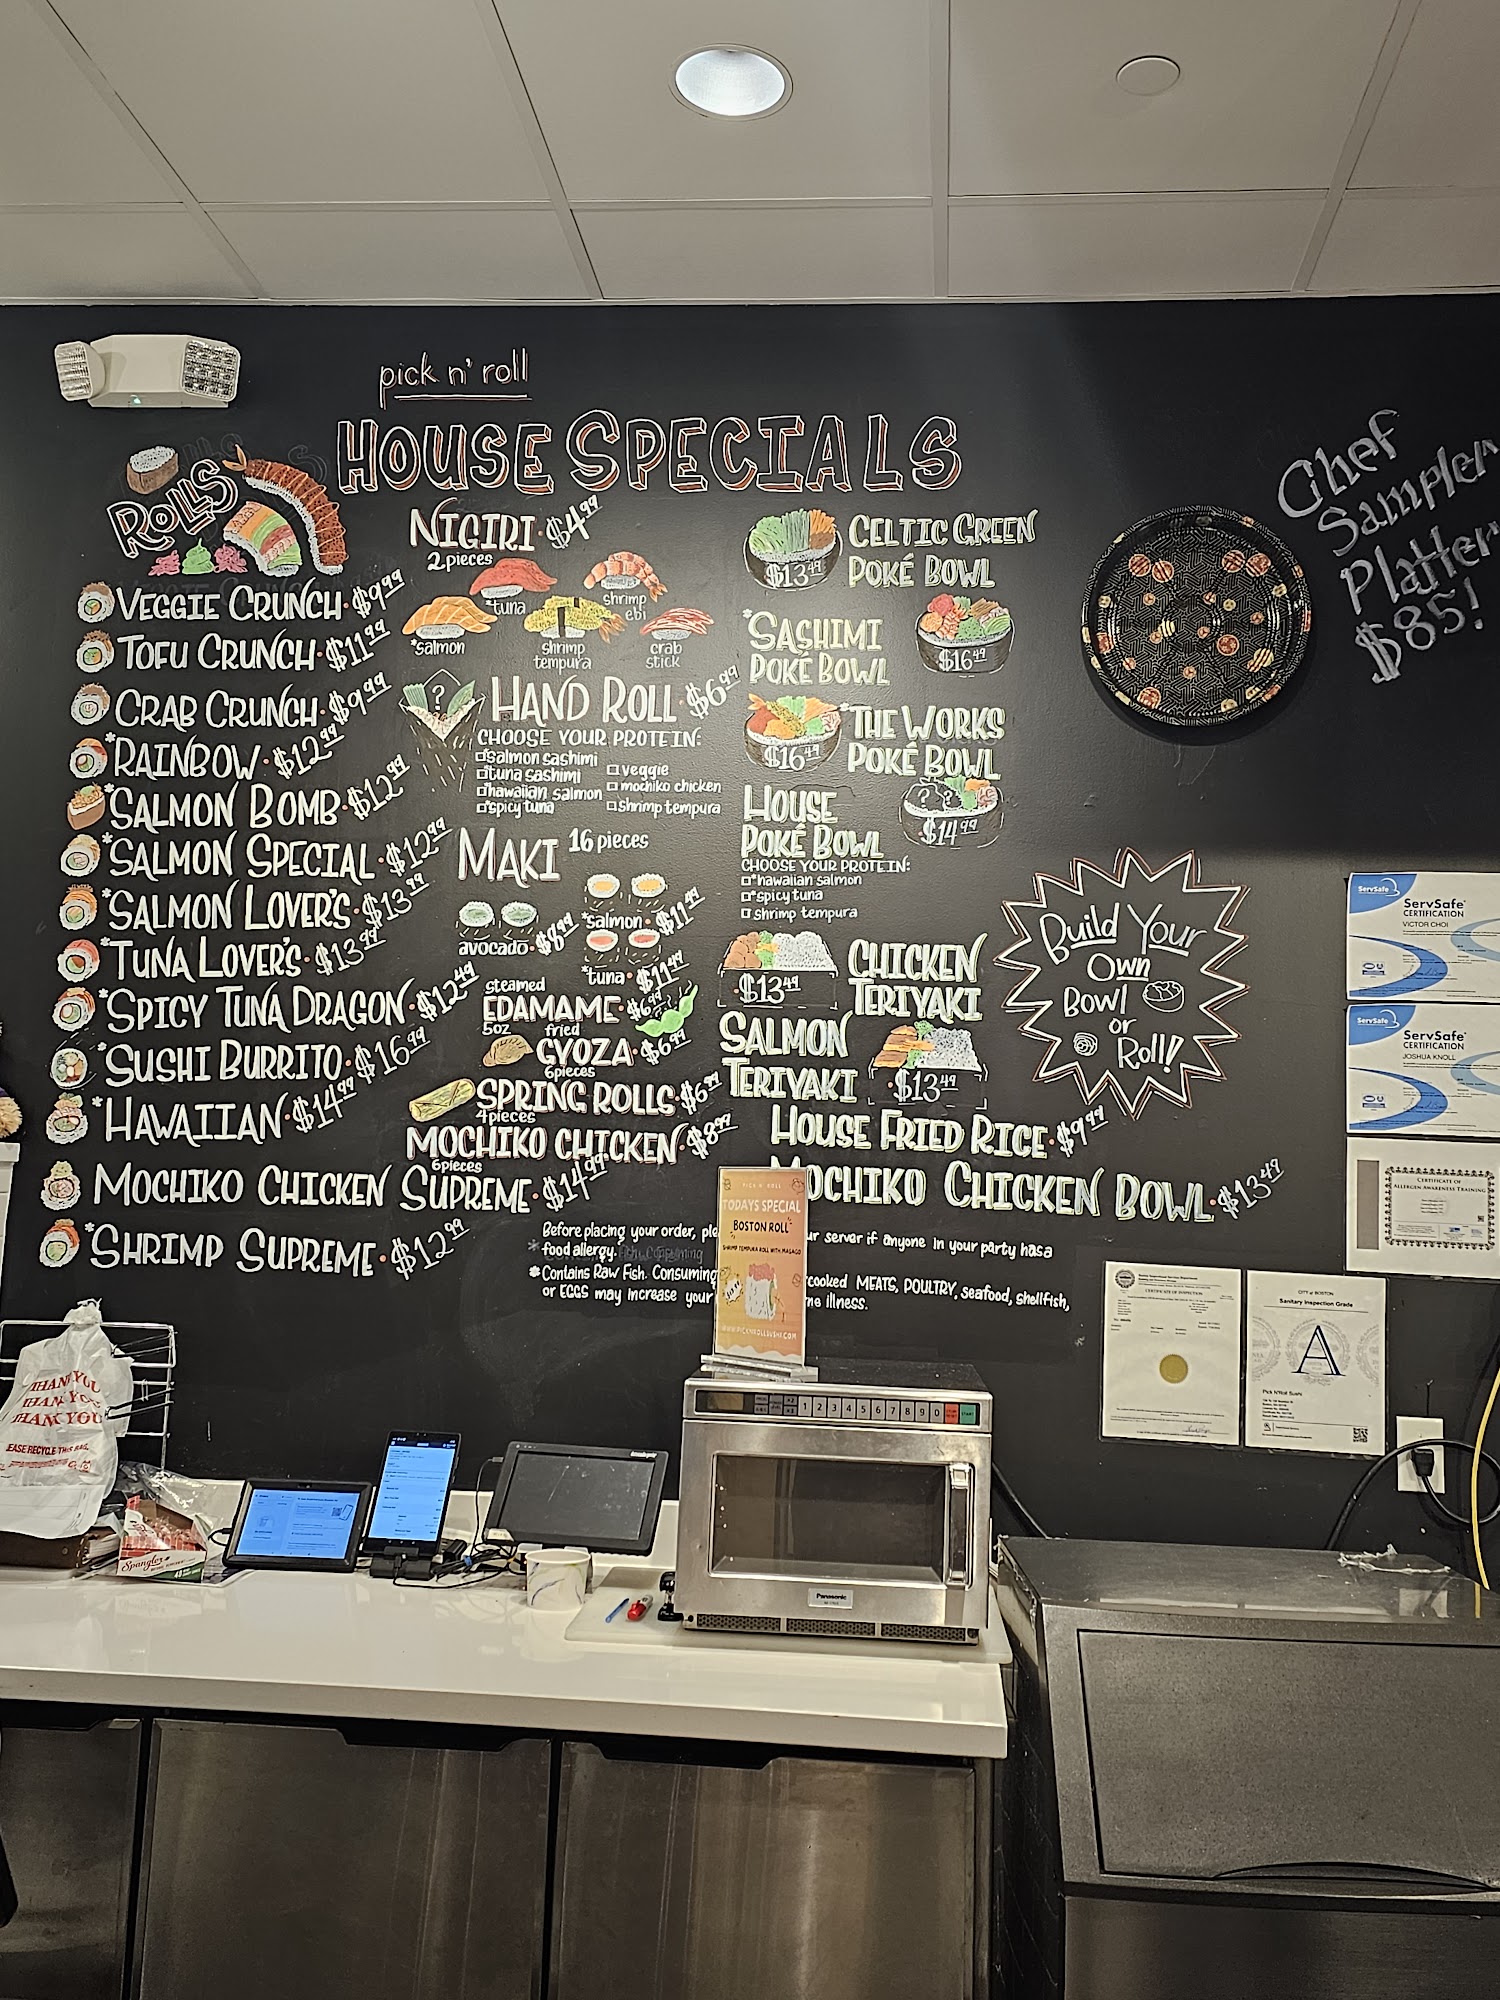 pick n' roll
HOUSE SPECIALS
ROLLS
VEGGIE CRUNCH · $9.99
TOFU CRUNCH · $11.99
CRAB CRUNCH · $9.99
*RAINBOW · $12.99
*SALMON BOMB · $12.99
*SALMON SPECIAL · $12.99
*SALMON LOVER'S · $13.99
*TUNA LOVER'S · $13.99
*SPICY TUNA DRAGON · $12.49
*SUSHI BURRITO · $16.99
*HAWAIIAN · $14.99
MOCHIKO CHICKEN SUPREME · $14.99
*SHRIMP SUPREME · $12.99
NIGIRI · $4.99
2 pieces
*tuna
shrimp
ebi
*salmon
shrimp
tempura
crab
stick
?
HAND ROLL · $6.99
CHOOSE YOUR PROTEIN:
*salmon sashimi
*tuna sashimi
*hawaiian salmon
*spicy tuna
veggie
mochiko chicken
shrimp tempura
MAKI 16 pieces
avocado · $8.99
*salmon · $11.49
*tuna · $11.49
steamed
EDAMAME · $6.99
5oz
fried
GYOZA · $6.99
6pieces
SPRING ROLLS · $6.99
4pieces
MOCHIKO CHICKEN · $8.99
6pieces
CELTIC GREEN
POKÉ BOWL
$13.49
*SASHIMI
POKÉ BOWL
$16.49
*THE WORKS
POKÉ BOWL
$16.49
HOUSE
POKÉ BOWL
? ?
$14.99
CHOOSE YOUR PROTEIN:
*hawaiian salmon
*spicy tuna
shrimp tempura
CHICKEN
TERIYAKI
$13.49
SALMON
TERIYAKI
$13.49
HOUSE FRIED RICE · $9.99
MOCHIKO CHICKEN BOWL · $13.49
Before placing your order, ple
ur server if anyone in your party has a
food allergy.
*Contains Raw Fish. Consuming
rcooked MEATS, POULTRY, seafood, shellfish,
or EGGS may increase your
ne illness.
Chef
Sampler
Platter
$85!
Build Your
Own
Bowl
or
Roll!
PICK N' ROLL
TODAYS SPECIAL
BOSTON ROLL
SHRIMP TEMPURA ROLL WITH MASAGO
WWW.PICKNROLLSUSHI.COM
ServSafe
ServSafe
CERTIFICATION
VICTOR CHOI
ServSafe
ServSafe
CERTIFICATION
JOSHUA KNOLL
CERTIFICATE OF
ALLERGEN AWARENESS TRAINING
CERTIFICATE OF INSPECTION
CITY of BOSTON
Sanitary Inspection Grade
A
Pick N'Roll Sushi
THANK YOU
THANK YOU
THANK YOU
EASE RECYCLE THIS BAG.
Spangler
1 2 3 4 5 6 7 8 9 0
START
Panasonic